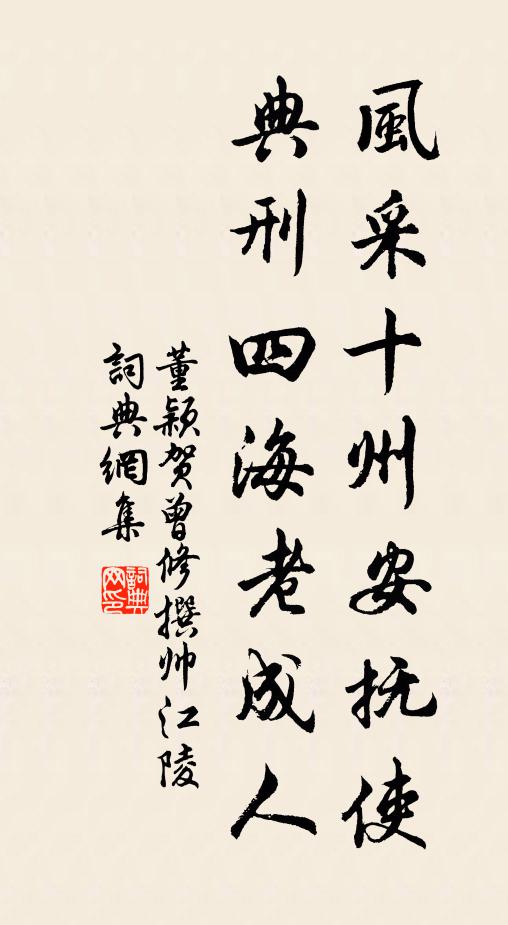 風采十州安抚使
典刑四海老成人
董颖贺曾修撰帅江陵
詞典網集
詞典網印